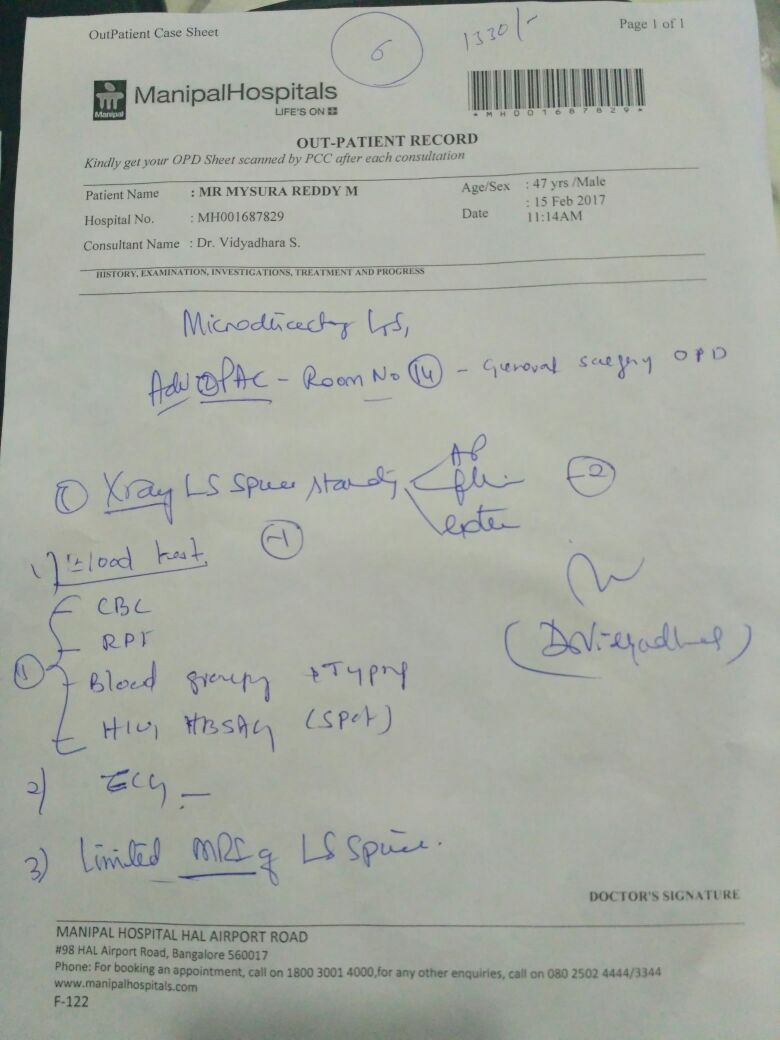 OutPatient Case Sheet
6
1330/-
Page 1 of 1
Manipal
ManipalHospitals
LIFE'S ON
*MH001687829*
OUT-PATIENT RECORD
Kindly get your OPD Sheet scanned by PCC after each consultation
Patient Name : MR MYSURA REDDY M
Age/Sex : 47 yrs /Male
Hospital No. : MH001687829
Date : 15 Feb 2017 11:14AM
Consultant Name : Dr. Vidyadhara S.
HISTORY, EXAMINATION, INVESTIGATIONS, TREATMENT AND PROGRESS
PAC - Room No 14 - General surgery OPD
Xray LS Spine standing AP
-2
1) Blood test -1
CBC
Blood grouping + Typing
HIV, HBSAG (Spot)
2) ECG -
3) Limited MRI of LS Spine.
(Dr Vidyadhara)
DOCTOR'S SIGNATURE
MANIPAL HOSPITAL HAL AIRPORT ROAD
#98 HAL Airport Road, Bangalore 560017
Phone: For booking an appointment, call on 1800 3001 4000,for any other enquiries, call on 080 2502 4444/3344
www.manipalhospitals.com
F-122